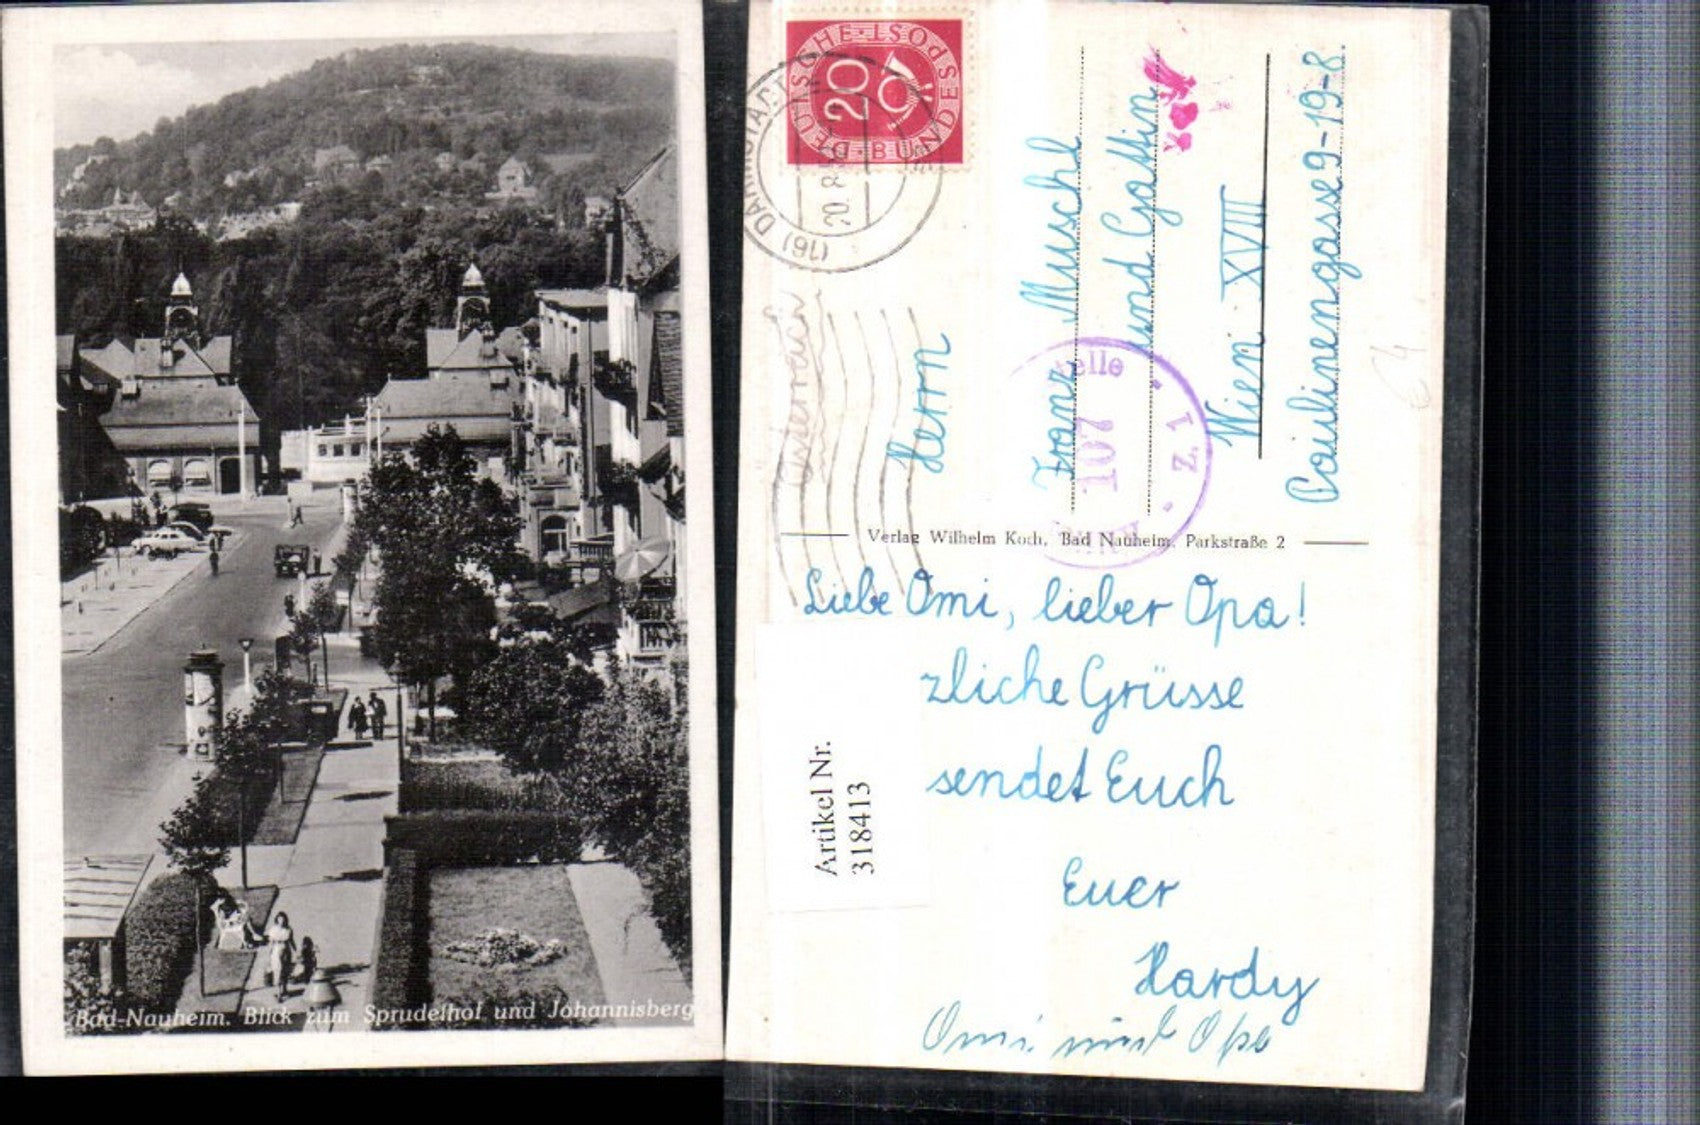 Bad-Nauheim. Blick zum Sprudelhof und Johannisberg
DEUTSCHE BUNDESPOST
20
(16) DARMSTADT
20. 8.
Österreich
Herrn
Franz Muschl
und Gattin
Wien XVIII
9-19-8.
elle
107
Z. 1
Verlag Wilhelm Koch, Bad Nauheim, Parkstraße 2
Liebe Omi, lieber Opa!
zliche Grüsse
sendet Euch
Euer
Hardy
Omi und Opa
Artikel Nr.
318413